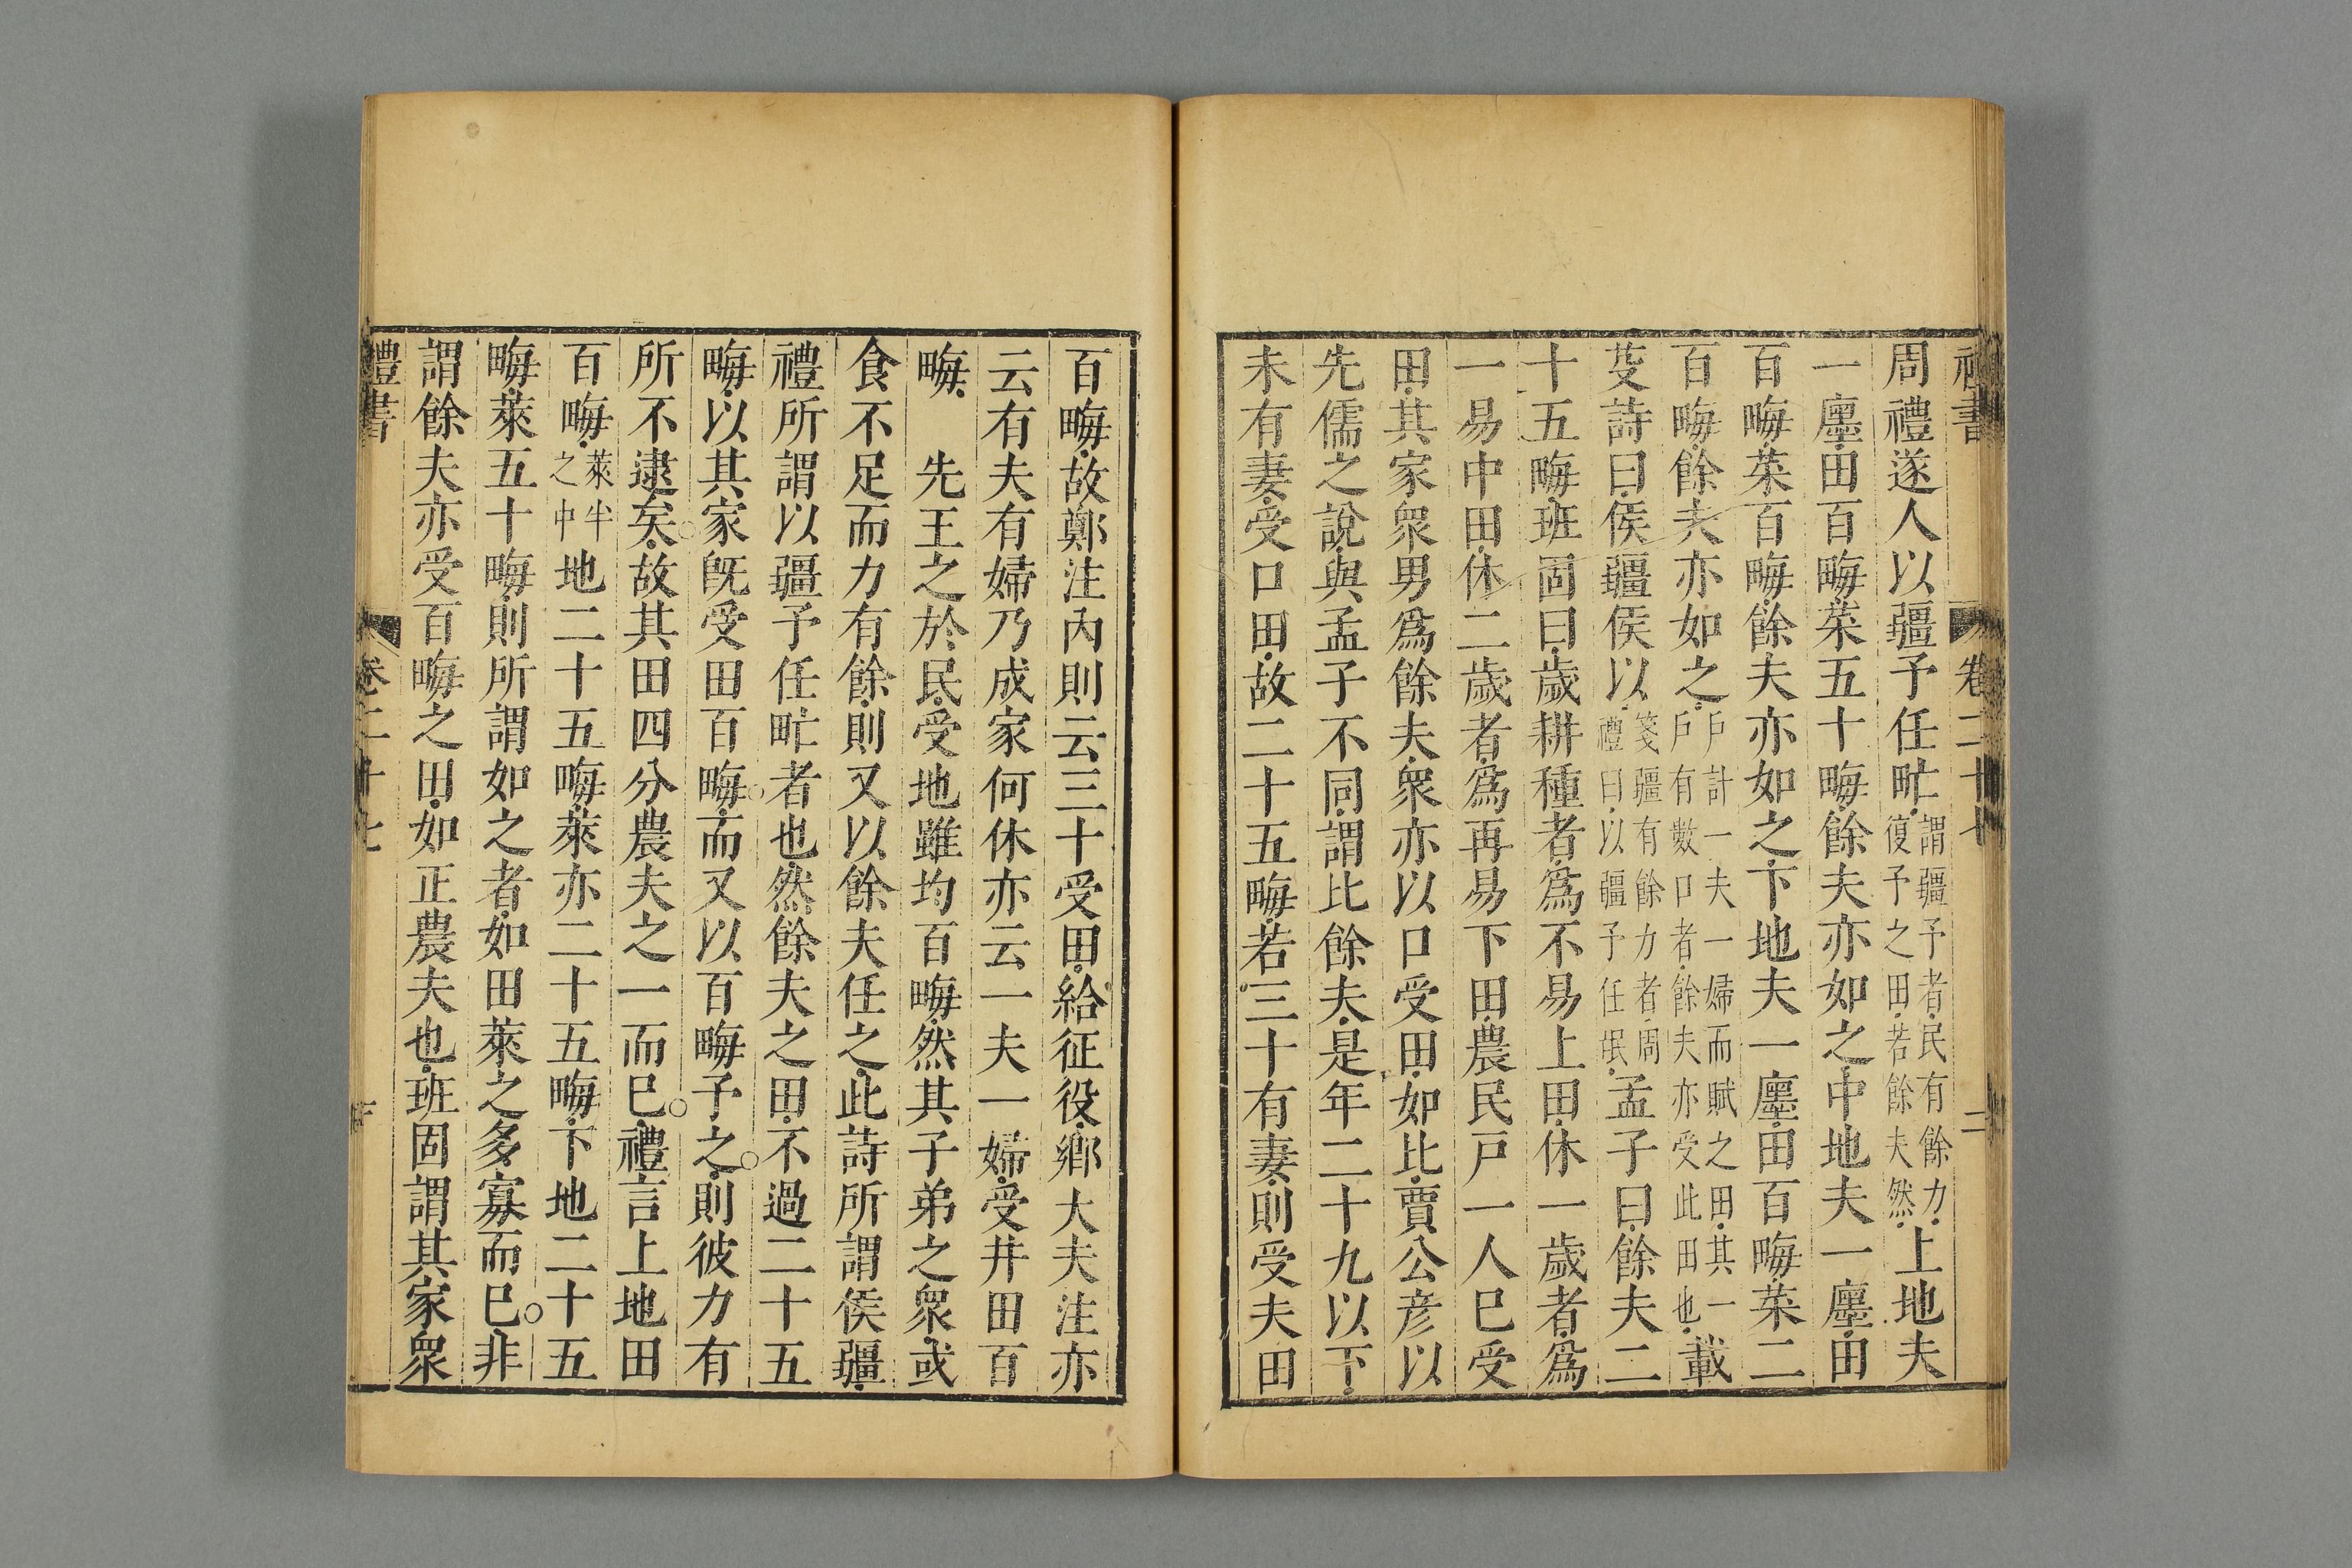 禮書 卷二十七 二
周禮遂人以疆予任甿謂疆予者民有餘力復予之田若餘夫然上地夫
一廛田百畮萊五十畮餘夫亦如之中地夫一廛田
百畮萊百畮餘夫亦如之下地夫一廛田百畮萊二
百畮餘夫亦如之戶計一夫一婦而賦之田其一戶有數口者餘夫亦受此田也載
芟詩曰侯疆侯以箋疆有餘力者周禮曰以疆予任民孟子曰餘夫二
十五畮班固曰歲耕種者為不易上田休一歲者為
一易中田休二歲者為再易下田農民戶一人已受
田其家衆男為餘夫衆亦以口受田如比賈公彥以
先儒之說與孟子不同謂比餘夫是年二十九以下
未有妻受口田故二十五畮若三十有妻則受夫田
百畮故鄭注內則云三十受田給征役鄉大夫注亦
云有夫有婦乃成家何休亦云一夫一婦受井田百
畮 先王之於民受地雖均百畮然其子弟之衆或
食不足而力有餘則又以餘夫任之此詩所謂侯疆
禮所謂以疆予任甿者也然餘夫之田不過二十五
畮以其家既受田百畮而又以百畮予之則彼力有
所不逮矣故其田四分農夫之一而已禮言上地田
百畮萊半之中地二十五畮萊亦二十五畮下地二十五
畮萊五十畮則所謂如之者如田萊之多寡而已非
謂餘夫亦受百畮之田如正農夫也班固謂其家衆
禮書 卷二十七